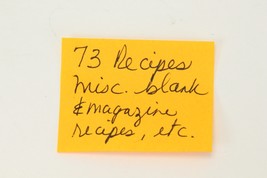 73 Recipes
misc. blank
& magazine
recipes, etc.